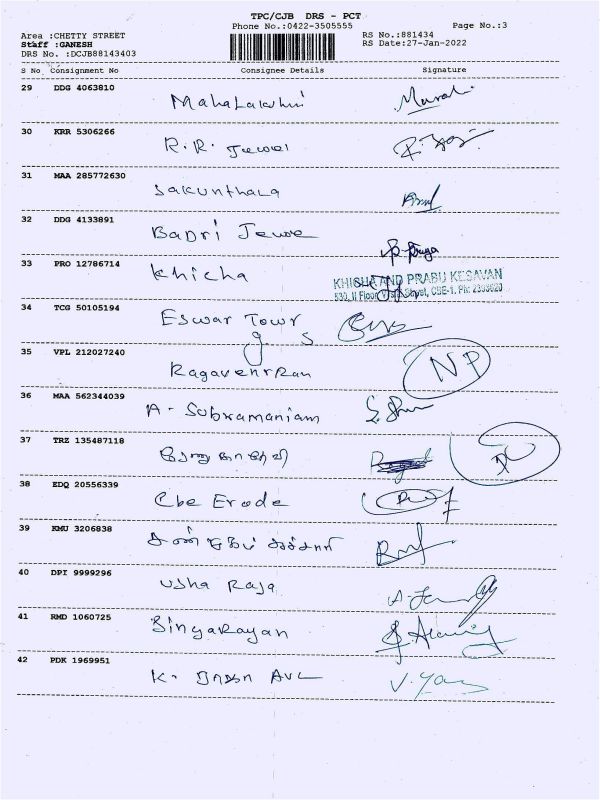 TPC/CJB DRS - PCT
Phone No.:0422-3505555 Page No.:3
Area :CHETTY STREET RS No.:881434
Staff :GANESH RS Date:27-Jan-2022
DRS No. :DCJB88143403
S No Consignment No Consignee Details Signature
29 DDG 4063810
Mahalakshmi
30 KRR 5306266
R.R. Jewel
31 MAA 285772630
Sakunthala
32 DDG 4133891
Badri Jewe
33 PRO 12786714
Khicha KHICHA AND PRABU KESAVAN
530, II Floor Street, CBE-1. Ph: 2393620
34 TCG 50105194
Eswar Tour
g s
35 VPL 212027240
Ragavendran NP
36 MAA 562344039
A. Subramaniam
37 TRZ 135487118
38 EDQ 20556339
Cbe Erode
39 KMU 3206838
சண்
40 DPI 9999296
Usha Raja
41 RMD 1060725
Singarayan
42 PDK 1969951
K. ராதா AVL